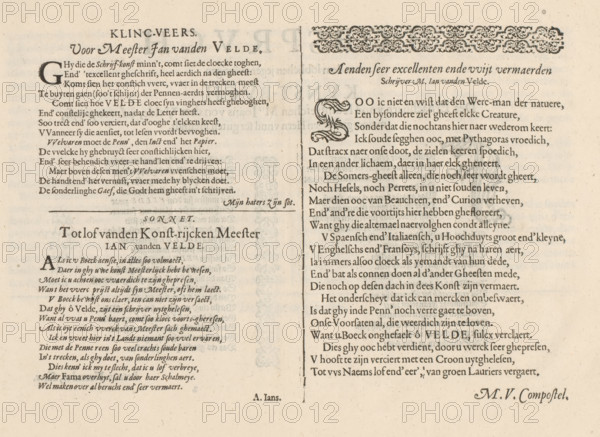 KLINC-VEERS.
Voor Meester Jan vanden VELDE.
GHy die de Schrijf-konst minn't, comt siet de cloecke toghen,
End' 'texcellent gheschrift, heel aerdich na den gheest:
Komt sien het constich vverc, vvaer in de trecken meest
Te buyten gaen (soo't schijnt) der Pennen-aerdts vermoghen.
Comt sien hoe VELDE cloec syn vinghers heeft gheboghen,
End' constelijc ghekeert, nadat de Letter heest.
Soo trect end' soo verciert, dat d'ooghe t'elcken keest,
VVanneer sy die aensiet, tot lesen vvordt bevvoghen.
VVelvaren moet de Penn', den Inct end' het Papier.
De vvelcke hy ghebruyct seer constichlijcken hier,
End' seer behendich vveet te handlen end te drijven:
Maer boven desen men's VVelvaren vvenschen moet,
De handt end' het vernuft, vvaer mede hy blijcken doet.
De sonderlinghe Gaef, die Godt hem gheeft in't schrijven.
Mijn haters zijn sot.
SONNET.
Tot lof vanden Konst-rijcken Meester
IAN vanden VELDE.
ALs ic v Boeck aensie, in alles soo volmaect,
Daer in ghy v'ne konst Meesterlijck hebt bewesen,
Moet ic u achten weerdich te zijn ghepresen,
Want het vvert prijst altijds syn Meester, als hem laect.
V Boeck bevvijst ons claer, ten can niet zijn versaect,
Dat ghy ô Velde, zijt een schrijver uytghelesen,
Want al wat u Penn' baert, comt soo kloec voort-gheresen,
Als is oyt eenich vverck van Meester sich ghemaect.
Ick en vveet hier in's Lands niemant soo wel ervaren,
Die met de Penne reen soo veel trachts soude baren
In't trecken, als ghy doet, van sonderlinghen aert.
Dies kenn' ick my te slecht, dat ic u lof verbreye,
Maer Fama overluyt, sal u door haer Schalmeye.
Wel maken over al berucht end' seer vermaert.
A. Ians.
Aenden seer excellenten ende vvijt vermaerden
Schrijver M. Ian vanden Velde.
SOO ic niet en wist dat den Werc-man der natuere,
Een bysondere ziel' gheeft elcke Creature,
Sonder dat die nochtans hier naer wederom keert:
Ick soude segghen ooc, met Pythagoras vroedich,
Dat stracx naer ons doot, de zielen keeren spoedich,
In een ander lichaem, daer in haer elck gheneert.
De Somers-gheest alleen, die noch seer wordt gheert,
Noch Hesels, noch Perrets, in u niet souden leven,
Maer dien ooc van Beauchesn, end' Curion verheven,
End' and're die voortijts hier hebben ghefloreert,
Want ghy vvat elck bysonder maeckte gheacht alleyne.
V Spaensch end' Italiaensch, u Hoochduyts groot end' kleyne,
V Enghelschs end' Fransoys, schrijft ghy na haren aert,
Ia in u allso cloeck als yemandt van hun dede,
End' bat als connen doen al d'ander Gheesten mede,
Die noch op desen dach in dees Konst zijn vermaert.
Het onderscheyt dat ick can mercken onbeswaert,
Is dat ghy inde Penn' noch verre gaet te boven,
Onse Voorsaten al, die weerdich zijn te loven.
Want u Boeck onghefaelt ô VELDE, sulcx verclaert.
Dies ghy ooc hebt verdient, door u werck seer ghepresen,
V hooft te zijn verciert met een Croon uytghelesen,
Tot vvs Naems lof end' eer', van groen Lauriers vergaert.
M. V. Compostel.
PHOTO12